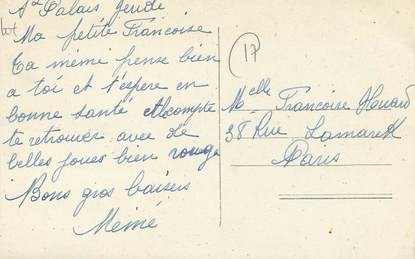 Palais jeudi
Ma petite Françoise
Ta mémé pense bien
a toi et t'espere en
bonne santé et compte
te retrouver avec de
belles joues bien rouge
Bons gros baisers
Mémé
17
Melle Françoise
38 Rue Lamarck
Paris